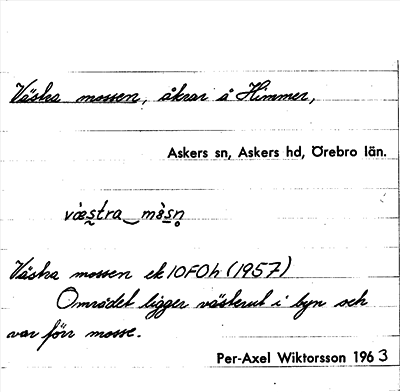 Västra mossen, åkrar å Himmer,
Askers sn, Askers hd, Örebro län.
væ̀stra‿mɵ̀sn̥
Västra mossen ek 10F0h (1957)
Området ligger västerut i byn och
var förr mosse.
Per-Axel Wiktorsson 1963